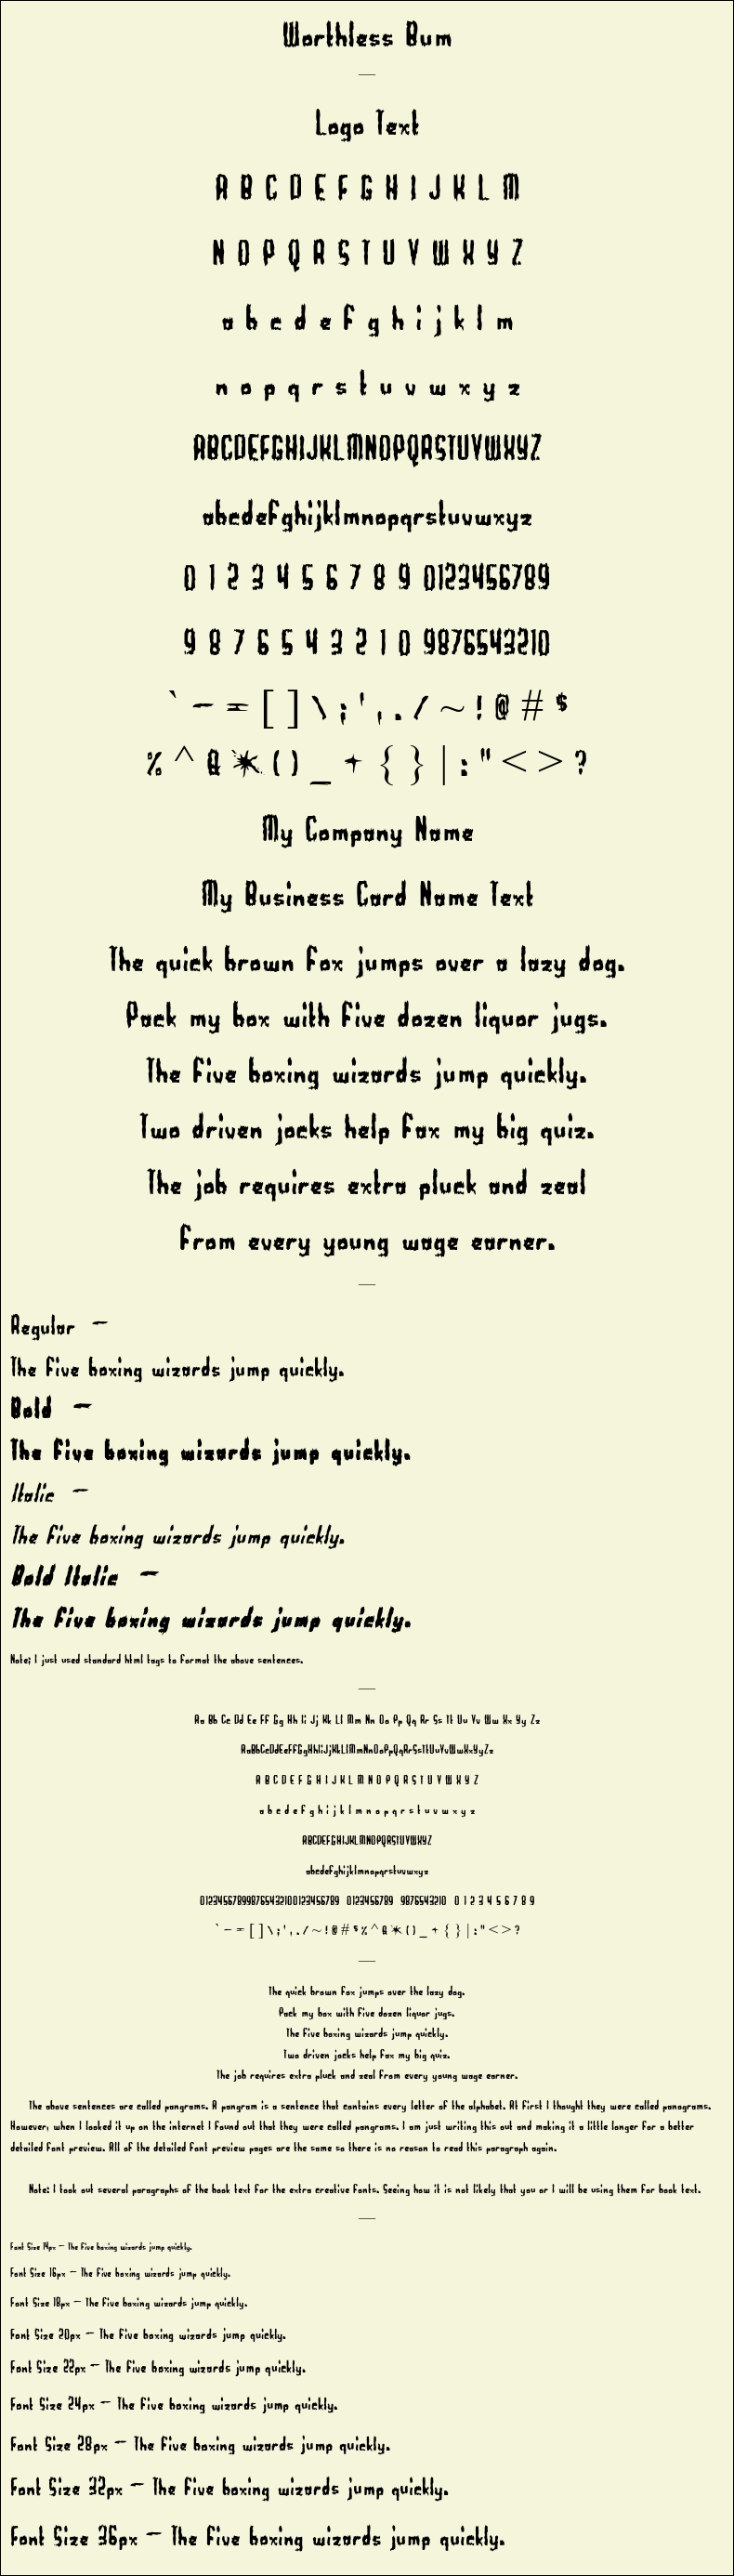 Worthless Bum
Logo Text
A B C D E F G H I J K L M
N O P Q R S T U V W X Y Z
a b c d e f g h i j k l m
n o p q r s t u v w x y z
ABCDEFGHIJKLMNOPQRSTUVWXYZ
abcdefghijklmnopqrstuvwxyz
0 1 2 3 4 5 6 7 8 9 0123456789
9 8 7 6 5 4 3 2 1 0 9876543210
` - = [ ] \ ; ' , . / ~ ! @ # $
% ^ & * ( ) _ + { } | : " < > ?
My Company Name
My Business Card Name Text
The quick brown fox jumps over a lazy dog.
Pack my box with five dozen liquor jugs.
The five boxing wizards jump quickly.
Two driven jocks help fax my big quiz.
The job requires extra pluck and zeal
from every young wage earner.
Regular -
The five boxing wizards jump quickly.
Bold -
The five boxing wizards jump quickly.
Italic -
The five boxing wizards jump quickly.
Bold Italic -
The five boxing wizards jump quickly.
Note; I just used standard html tags to format the above sentences.
Aa Bb Cc Dd Ee Ff Gg Hh Ii Jj Kk Ll Mm Nn Oo Pp Qq Rr Ss Tt Uu Vv Ww Xx Yy Zz
AaBbCcDdEeFfGgHhIiJjKkLlMmNnOoPpQqRrSsTtUuVvWwXxYyZz
A B C D E F G H I J K L M N O P Q R S T U V W X Y Z
a b c d e f g h i j k l m n o p q r s t u v w x y z
ABCDEFGHIJKLMNOPQRSTUVWXYZ
abcdefghijklmnopqrstuvwxyz
012345678998765432100123456789 0123456789 9876543210 0 1 2 3 4 5 6 7 8 9
` - = [ ] \ ; ' , . / ~ ! @ # $ % ^ & * ( ) _ + { } | : " < > ?
The quick brown fox jumps over the lazy dog.
Pack my box with five dozen liquor jugs.
The five boxing wizards jump quickly.
Two driven jocks help fax my big quiz.
The job requires extra pluck and zeal from every young wage earner.
The above sentences are called pangrams. A pangram is a sentence that contains every letter of the alphabet. At first I thought they were called panagrams.
However, when I looked it up on the internet I found out that they were called pangrams. I am just writing this out and making it a little longer for a better
detailed font preview. All of the detailed font preview pages are the same so there is no reason to read this paragraph again.
Note: I took out several paragraphs of the book text for the extra creative fonts. Seeing how it is not likely that you or I will be using them for book text.
Font Size 14px - The five boxing wizards jump quickly.
Font Size 16px - The five boxing wizards jump quickly.
Font Size 18px - The five boxing wizards jump quickly.
Font Size 20px - The five boxing wizards jump quickly.
Font Size 22px - The five boxing wizards jump quickly.
Font Size 24px - The five boxing wizards jump quickly.
Font Size 28px - The five boxing wizards jump quickly.
Font Size 32px - The five boxing wizards jump quickly.
Font Size 36px - The five boxing wizards jump quickly.